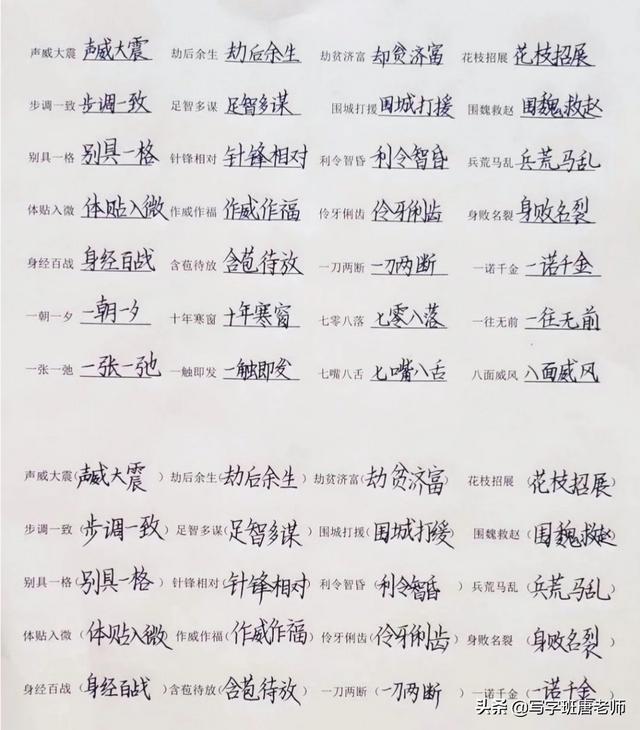 声威大震 声威大震 劫后余生 劫后余生 劫贫济富 劫贫济富 花枝招展 花枝招展
步调一致 步调一致 足智多谋 足智多谋 围城打援 围城打援 围魏救赵 围魏救赵
别具一格 别具一格 针锋相对 针锋相对 利令智昏 利令智昏 兵荒马乱 兵荒马乱
体贴入微 体贴入微 作威作福 作威作福 伶牙俐齿 伶牙俐齿 身败名裂 身败名裂
身经百战 身经百战 含苞待放 含苞待放 一刀两断 一刀两断 一诺千金 一诺千金
一朝一夕 一朝一夕 十年寒窗 十年寒窗 七零八落 七零八落 一往无前 一往无前
一张一弛 一张一弛 一触即发 一触即发 七嘴八舌 七嘴八舌 八面威风 八面威风
声威大震(声威大震) 劫后余生(劫后余生) 劫贫济富(劫贫济富) 花枝招展(花枝招展)
步调一致(步调一致) 足智多谋(足智多谋) 围城打援(围城打援) 围魏救赵(围魏救赵)
别具一格(别具一格) 针锋相对(针锋相对) 利令智昏(利令智昏) 兵荒马乱(兵荒马乱)
体贴入微(体贴入微) 作威作福(作威作福) 伶牙俐齿(伶牙俐齿) 身败名裂(身败名裂)
身经百战(身经百战) 含苞待放(含苞待放) 一刀两断(一刀两断) 一诺千金(一诺千金)
头条 @写字班唐老师